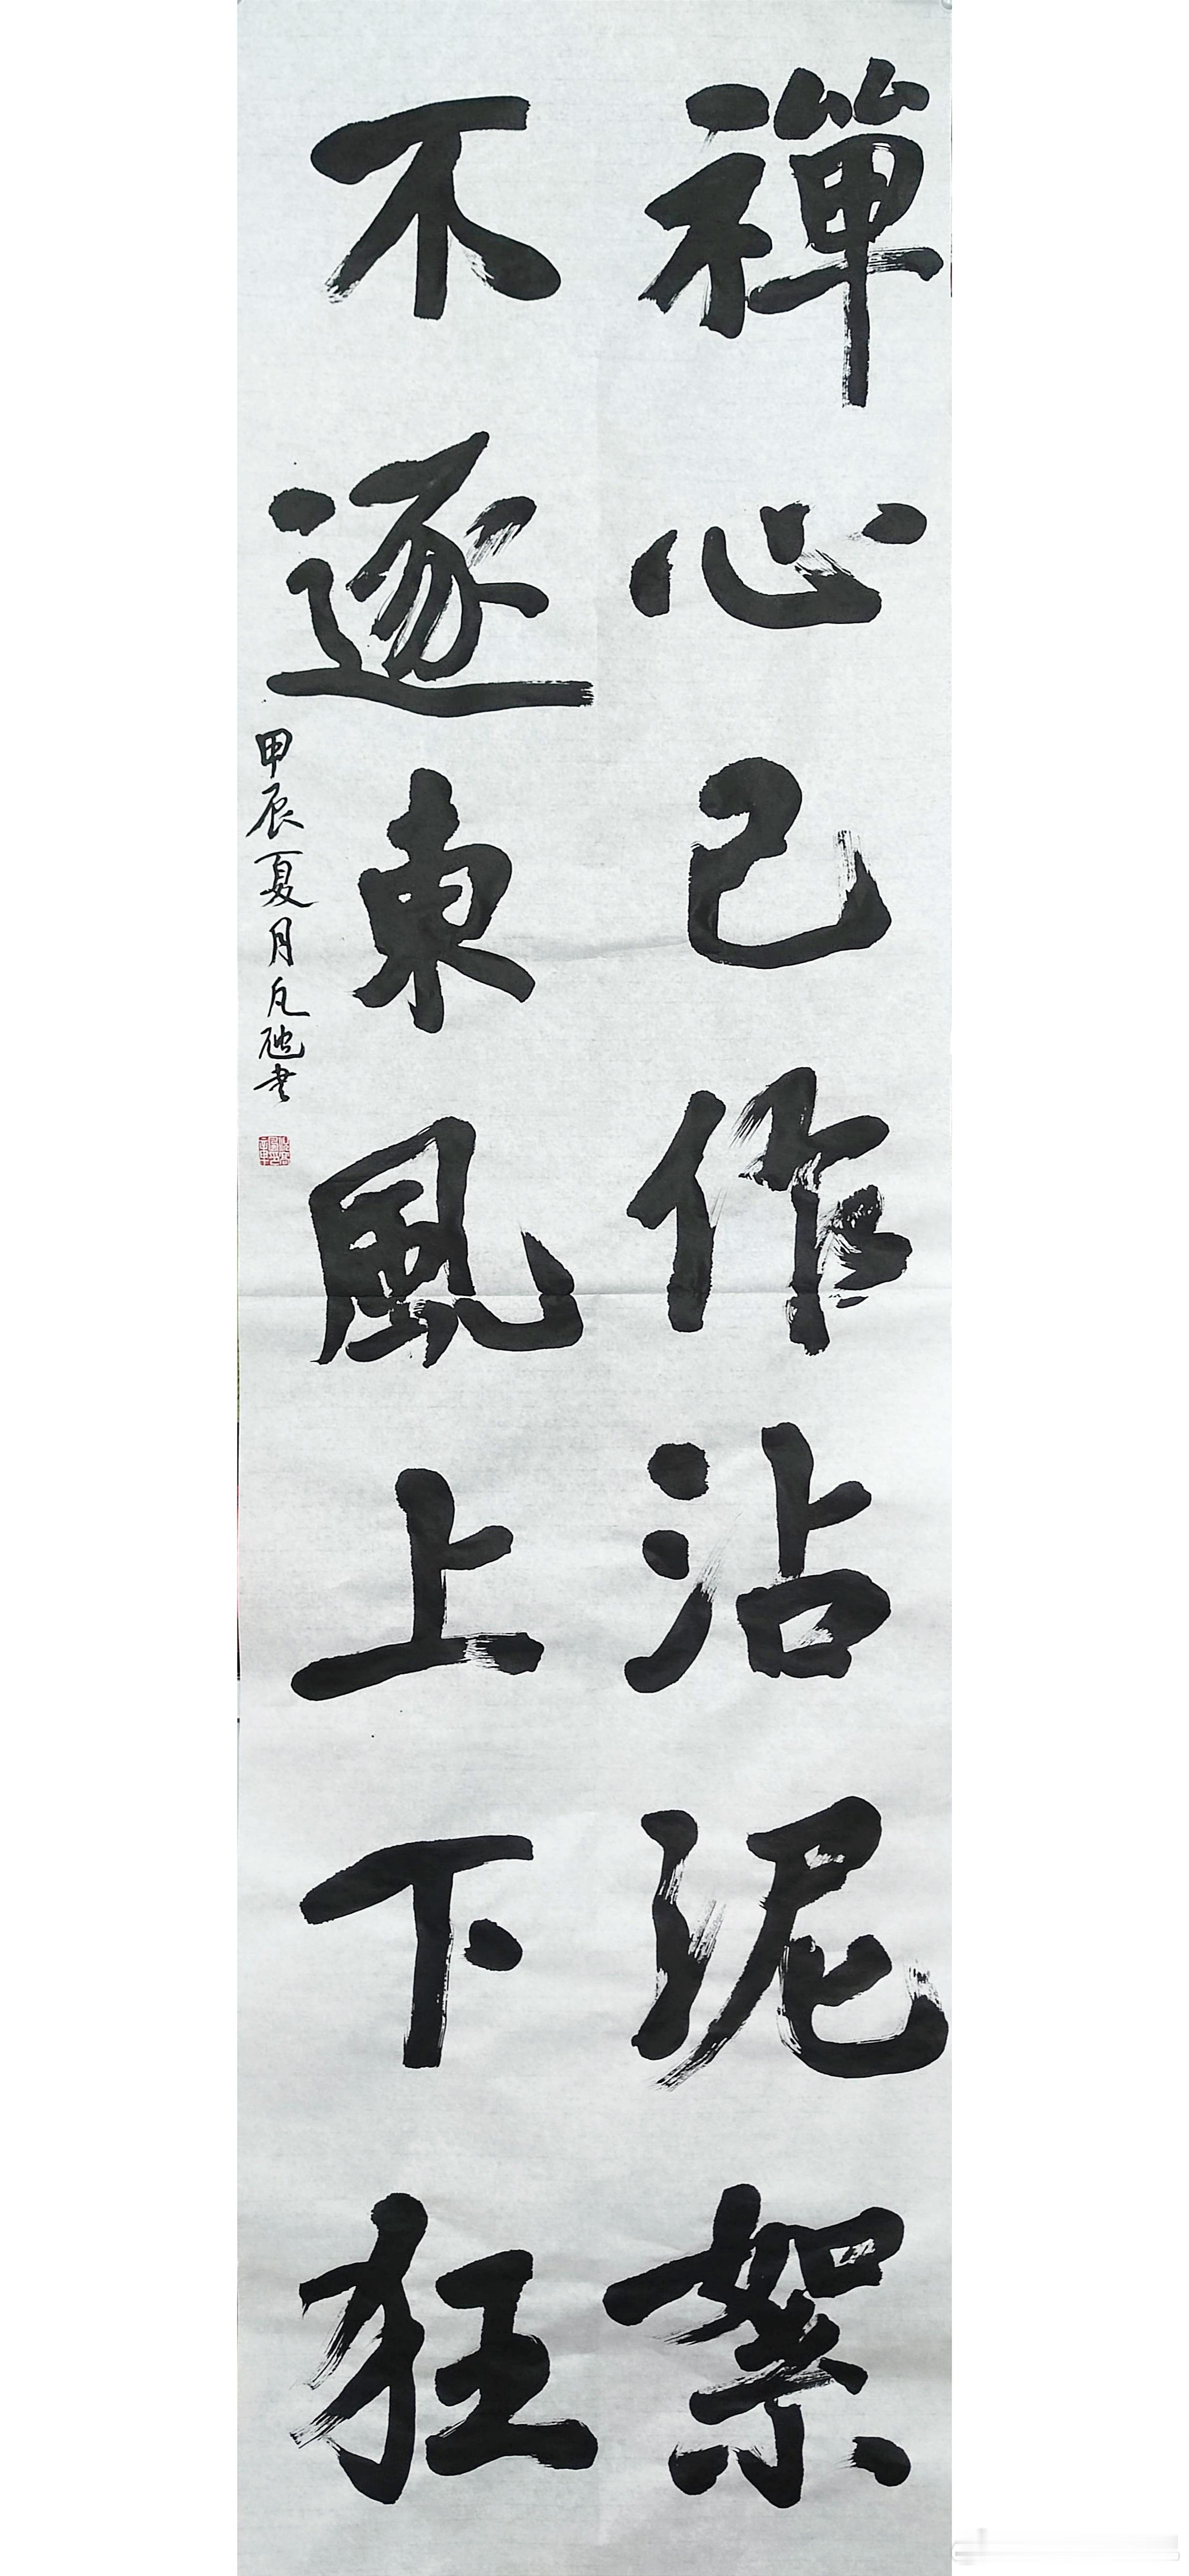 禪心已作沾泥絮
不逐東風上下狂
甲辰夏月凡
書